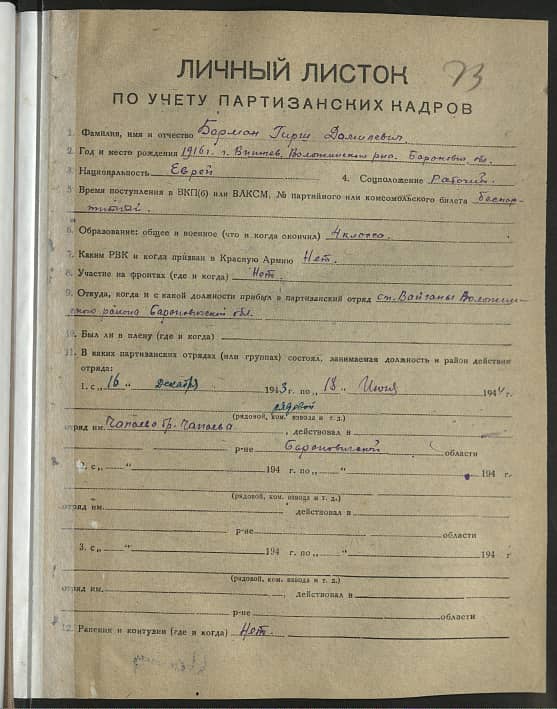 73
ЛИЧНЫЙ ЛИСТОК
ПО УЧЕТУ ПАРТИЗАНСКИХ КАДРОВ
1. Фамилия, имя и отчество Борман Гирш
2. Год и место рождения 1916 г. г. Вишнев, Воложинского р-на. Баранович. обл.
3. Национальность Еврей 4. Соцположение Рабочий.
5. Время поступления в ВКП(б) или ВЛКСМ, № партийного или комсомольского билета беспар-
тийный.
6. Образование: общее и военное (что и когда окончил) 4 класса.
7. Каким РВК и когда призван в Красную Армию Нет.
8. Участие на фронтах (где и когда) Нет.
9. Откуда, когда и с какой должности прибыл в партизанский отряд ст. Воложин-
ского района Барановичской обл.
10. Был ли в плену (где и когда)
11. В каких партизанских отрядах (или группах) состоял, занимаемая должность и район действия
отряда:
1. с „16 „ Декабря 1943 г. по „ 18 „ Июня 1944 г.
рядовой
(рядовой, ком. взвода и т. д.)
отряд им. Чапаева бр. Чапаева, действовал в
р-не Барановичской области
2. с „ “ 194 г. по „ “ 194 г.
(рядовой, ком. взвода и т. д.)
отряд им. , действовал в
р-не области
3. с „ “ 194 г. по „ “ 194 г
(рядовой, ком. взвода и т. д.)
отряд им. , действовал в
р-не области
12. Ранения и контузии (где и когда) Нет.